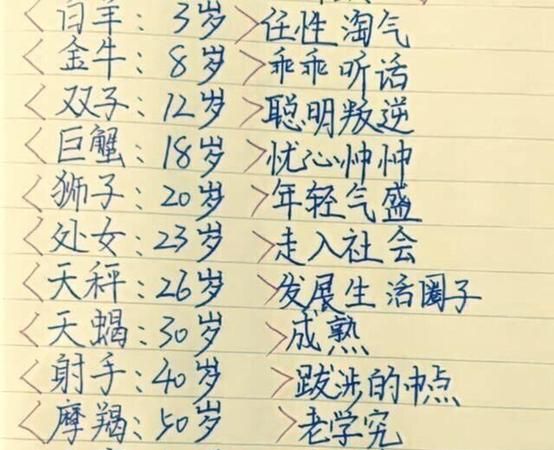 <白羊：3岁>任性淘气
<金牛：8岁>乖乖听话
<双子：12岁>聪明叛逆
<巨蟹：18岁>忧心忡忡
<狮子：20岁>年轻气盛
<处女：23岁>走入社会
<天秤：26岁>发展生活圈子
<天蝎：30岁>成熟
<射手：40岁>跋涉的中点
<摩羯：50岁>老学究